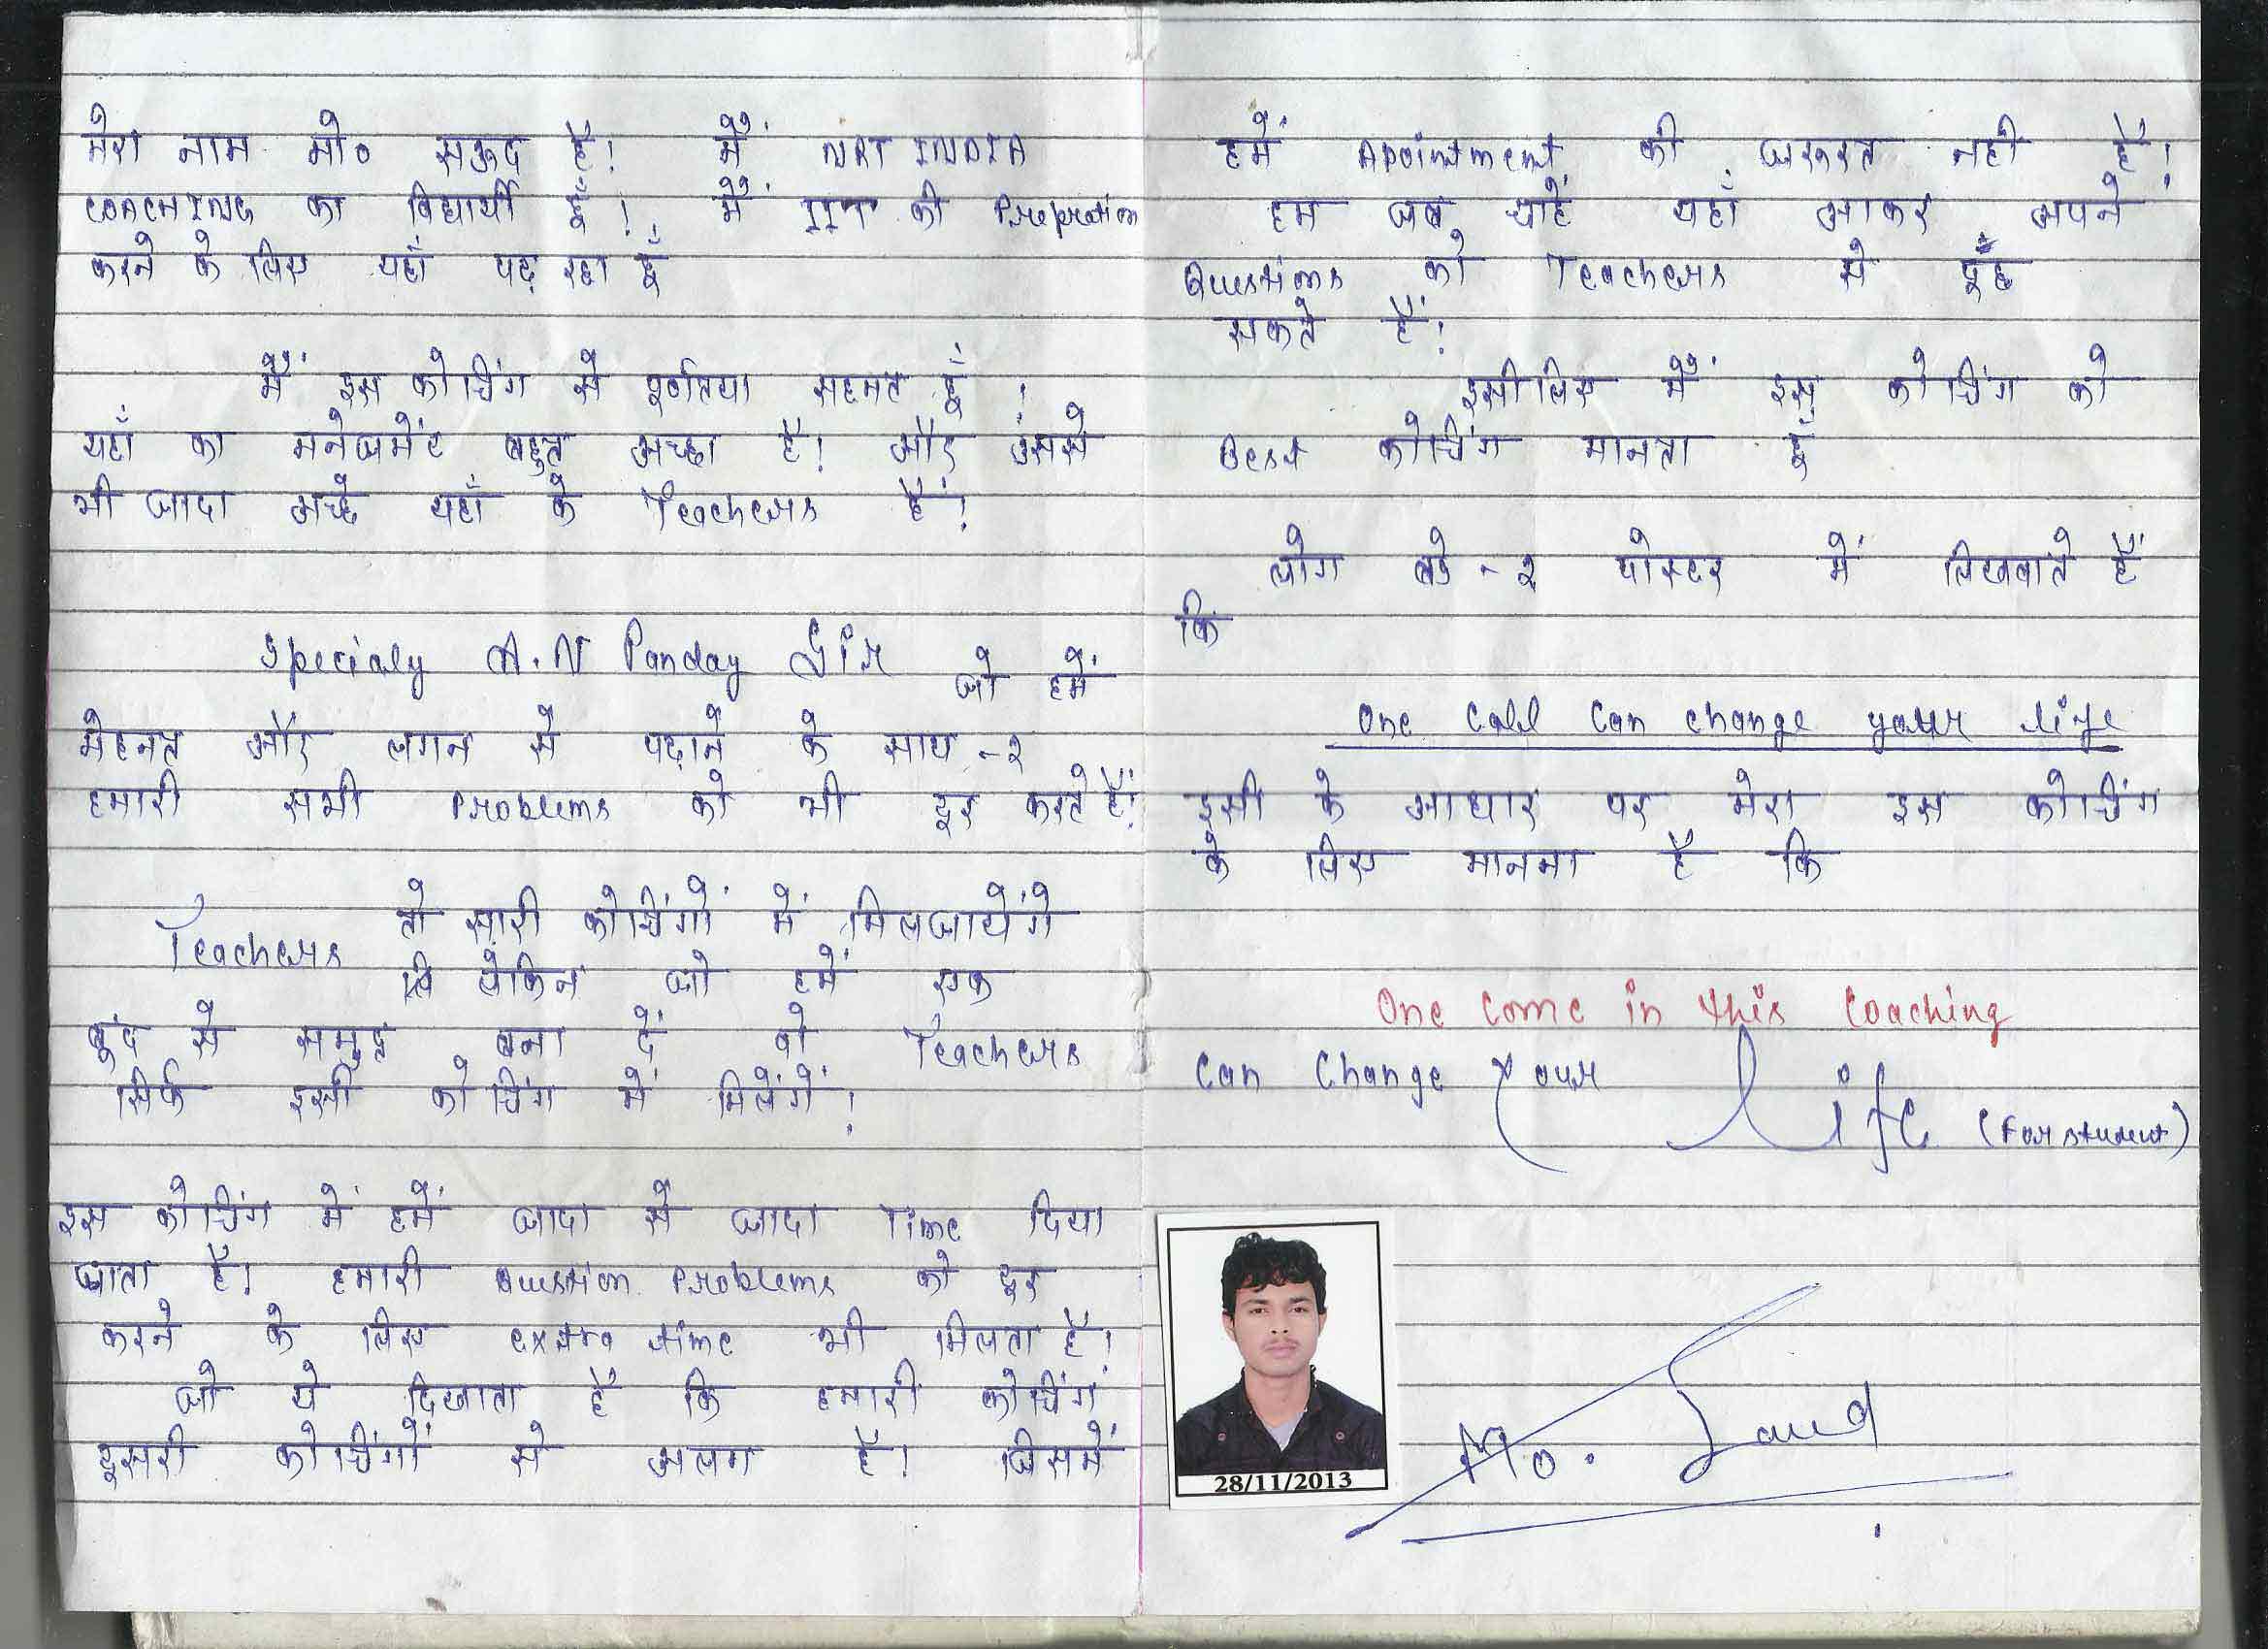 मेरा नाम मो० सऊद है! मैं NRI INDIA
COACHING का विद्यार्थी हूँ! मैं IIT की Prepration
करने के लिए यहाँ पढ़ रहा हूँ
मैं इस कोचिंग से पूर्णतया सहमत हूँ!
यहाँ का मनेजमेंट बहुत अच्छा है! और उससे
भी जादा अच्छे यहाँ के Teachers हैं!
Specialy A.N Panday Sir जो हमें
मेहनत और लगन से पढ़ाने के साथ-२
हमारी सभी Problems को भी दूर करते हैं!
Teachers तो सारी कोचिंगों में मिलजायेंगे
लेकिन जो हमें एक
बूंद से समुद्र बना दें वो Teachers
सिर्फ इसी कोचिंग में मिलेंगें!
इस कोचिंग में हमें जादा से जादा Time दिया
जाता है! हमारी Question Problems को दूर
करने के लिए extra time भी मिलता है!
जो ये दिखाता है कि हमारी कोचिंग
दूसरी कोचिंगों से अलग है! जिसमें
हमें Apointment की जरुरत नही है!
हम जब चाहें यहाँ आकर अपने
Questions को Teachers से पूँछ
सकते हैं!
इसीलिए मैं इस कोचिंग को
Best कोचिंग मानता हूँ
लोग बडे-२ पोस्टर में लिखवाते हैं
कि
One Call Can change your life
इसी के आधार पर मेरा इस कोचिंग
के लिए मानना है कि
One Come in this Coaching
Can Change Your Life (For student)
28/11/2013
Mo. Saud